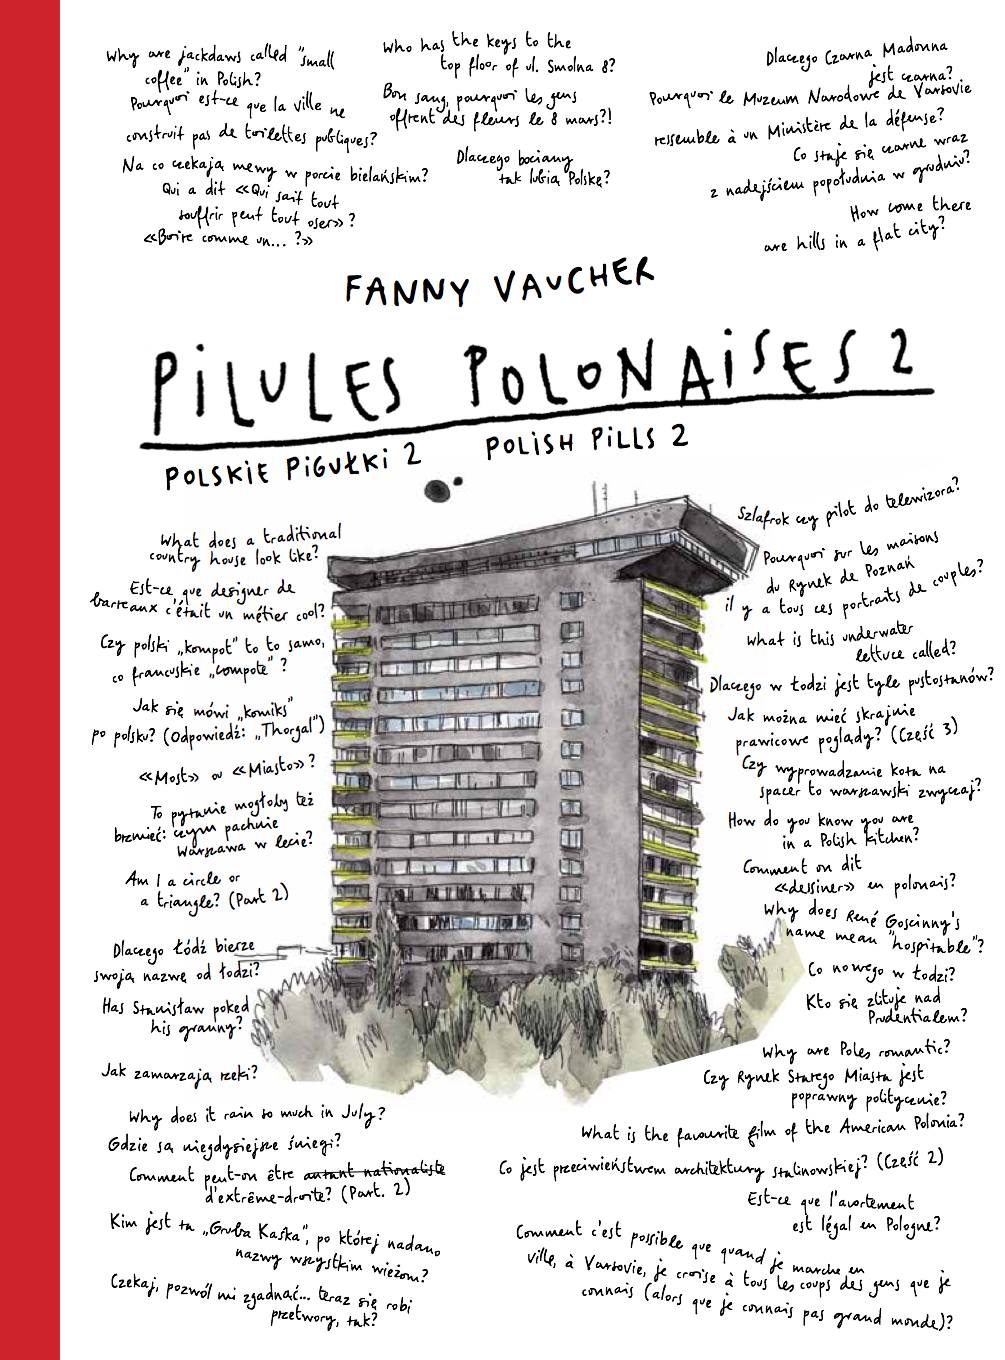 Why are jackdaws called "small
coffee" in Polish?
Pourquoi est-ce que la ville ne
construit pas de toilettes publiques?
Na co czekają mewy w porcie bielańskim?
Qui a dit «Qui sait tout
souffrir peut tout oser»?
«Boire comme un... ?»
Who has the keys to the
top floor of ul. Smolna 8?
Bon sang, pourquoi les gens
offrent des fleurs le 8 mars?!
Dlaczego bociany
tak lubią Polskę?
Dlaczego Czarna Madonna
jest czarna?
Pourquoi le Muzeum Narodowe de Varsovie
ressemble à un Ministère de la défense?
Co staje się czarne wraz
z nadejściem popołudnia w grudniu?
How come there
are hills in a flat city?
FANNY VAUCHER
PILULES POLONAISES 2
POLSKIE PIGUŁKI 2
POLISH PILLS 2
What does a traditional
country house look like?
Est-ce que designer de
barreaux c'était un métier cool?
Czy polski „kompot" to to samo,
co francuskie „compote" ?
Jak się mówi „komiks"
po polsku? (Odpowiedź: „Thorgal")
«Most» ou «Miasto»?
To pytanie mogłoby też
brzmieć: czym pachnie
Warszawa w lecie?
Am I a circle or
a triangle? (Part 2)
Dlaczego Łódź bierze
swoją nazwę od łodzi?
Has Stanisław poked
his granny?
Jak zamarzają rzeki?
Why does it rain so much in July?
Gdzie są niegdysiejsze śniegi?
Comment peut-on être autant nationaliste
d'extrême-droite? (Part. 2)
Kim jest ta „Gruba Kaśka", po której nadano
nazwy wszystkim wieżom?
Czekaj, pozwól mi zgadnąć... teraz się robi
przetwory, tak?
Szlafrok czy pilot do telewizora?
Pourquoi sur les maisons
du Rynek de Poznań
il y a tous ces portraits de couples?
What is this underwater
lettuce called?
Dlaczego w Łodzi jest tyle pustostanów?
Jak można mieć skrajnie
prawicowe poglądy? (Część 3)
Czy wyprowadzanie kota na
spacer to warszawski zwyczaj?
How do you know you are
in a Polish kitchen?
Comment on dit
«dessiner» en polonais?
Why does René Goscinny's
name mean "hospitable"?
Co nowego w Łodzi?
Kto się zlituje nad
Prudentialem?
Why are Poles romantic?
Czy Rynek Starego Miasta jest
poprawny politycznie?
What is the favourite film of the American Polonia?
Co jest przeciwieństwem architektury stalinowskiej? (Część 2)
Est-ce que l'avortement
est légal en Pologne?
Comment c'est possible que quand je marche en
ville, à Varsovie, je croise à tous les coups des gens que je
connais (alors que je connais pas grand monde)?